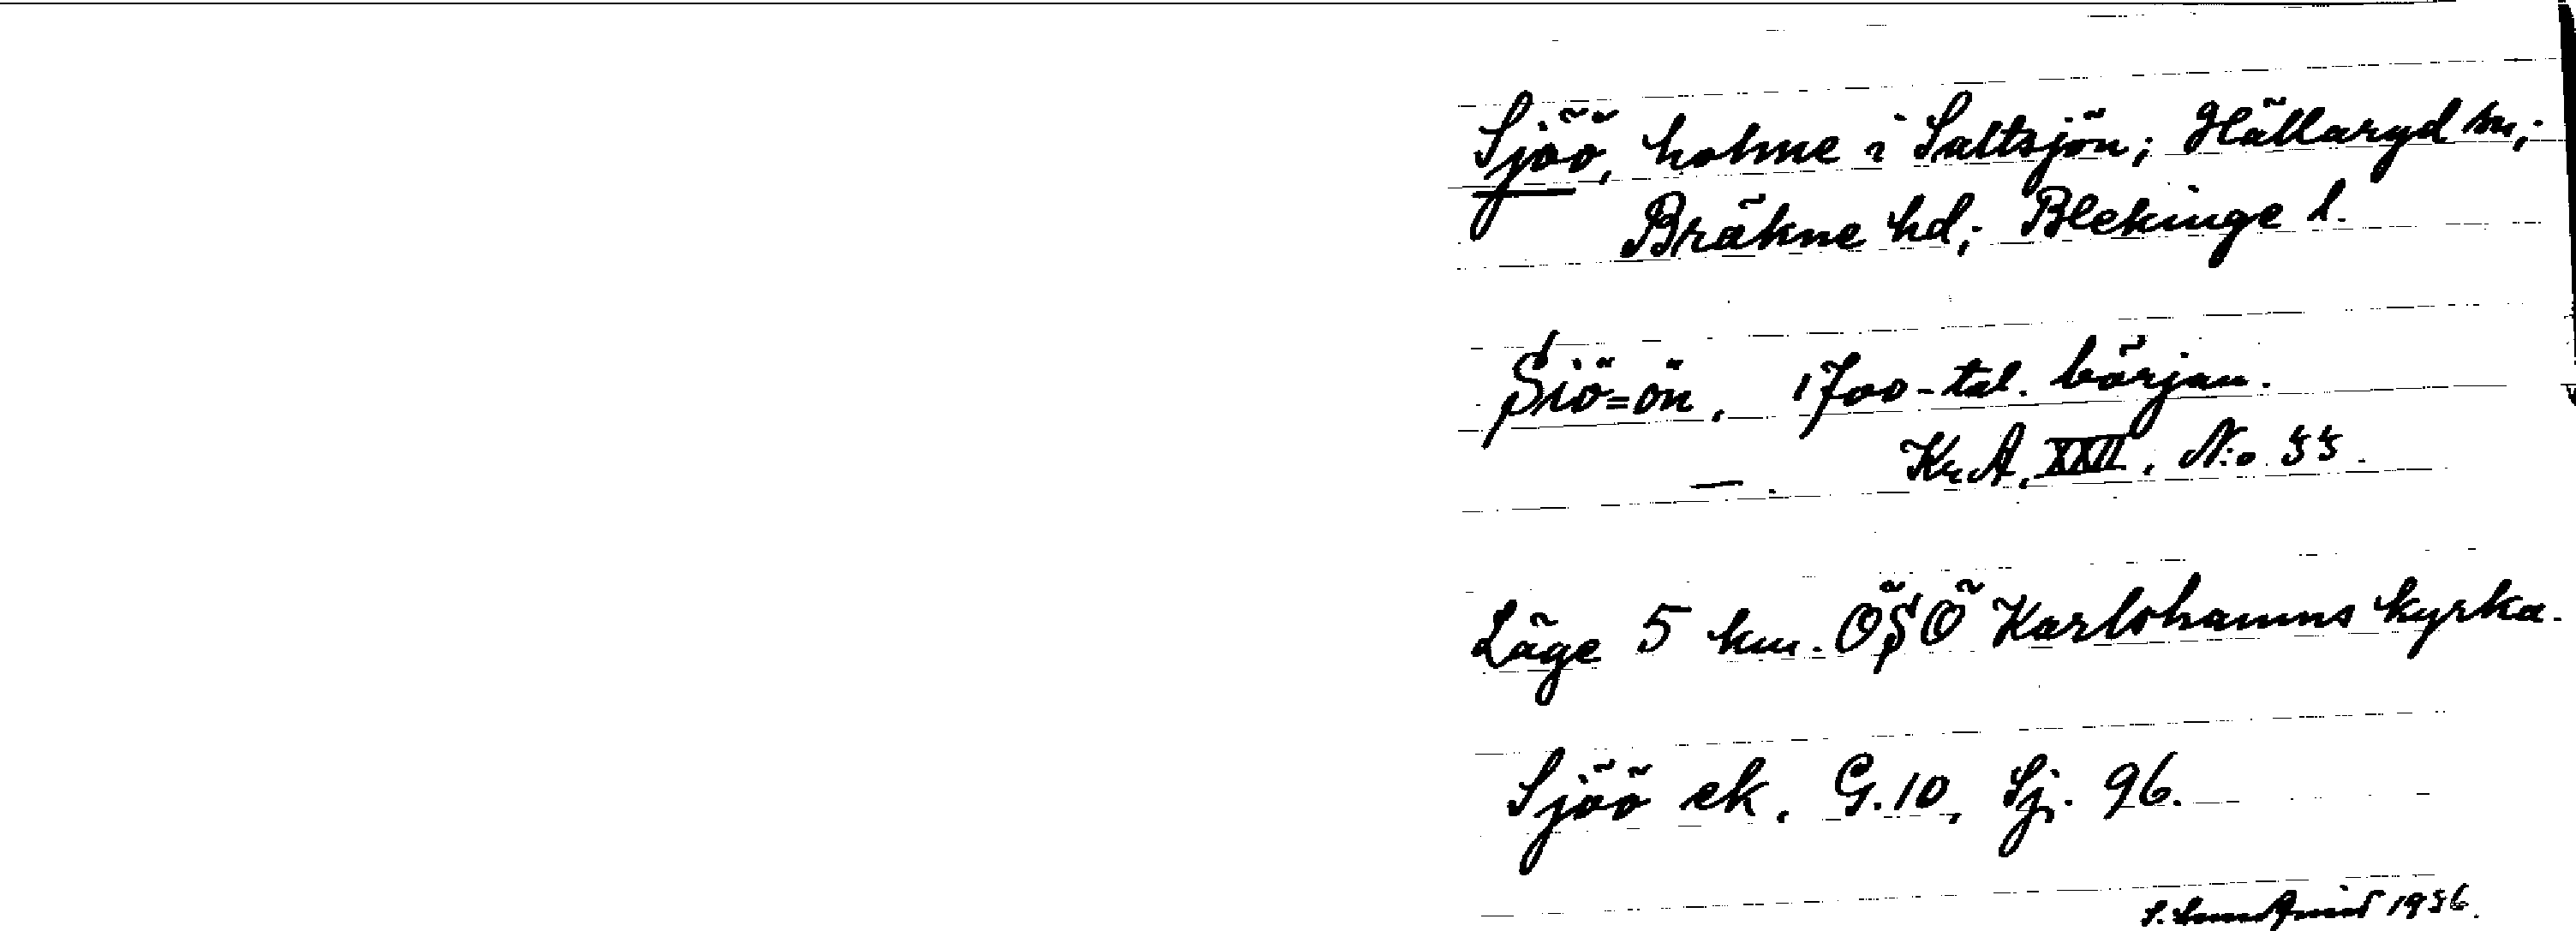 Sjöö, holme i Saltsjön; Hällaryd sn;
Bräkne hd; Blekinge l.
Siö=ön, 1700-tal. början.
—. Kr.A. XXII, N:o 55.
Läge 5 km. ÖSÖ Karlshamns kyrka.
Sjöö ek. G.10, Sj. 96.
S. 1956.